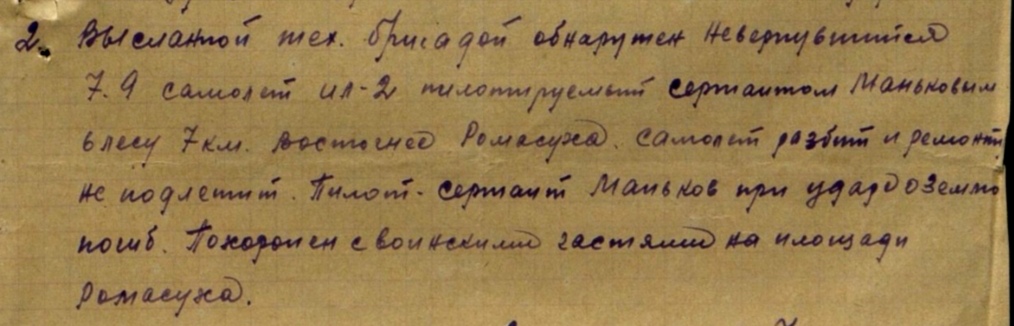 2. Высланной тех. бригадой обнаружен невернувшийся
7.9 самолет ил-2 пилотируемый сержантом Маньковым
в лесу 7 км. восточнее Ромасуха. Самолет разбит и ремонт
не подлежит. Пилот - сержант Маньков при ударе о землю
погиб. Похоронен с воинскими частями на площади
Ромасуха.